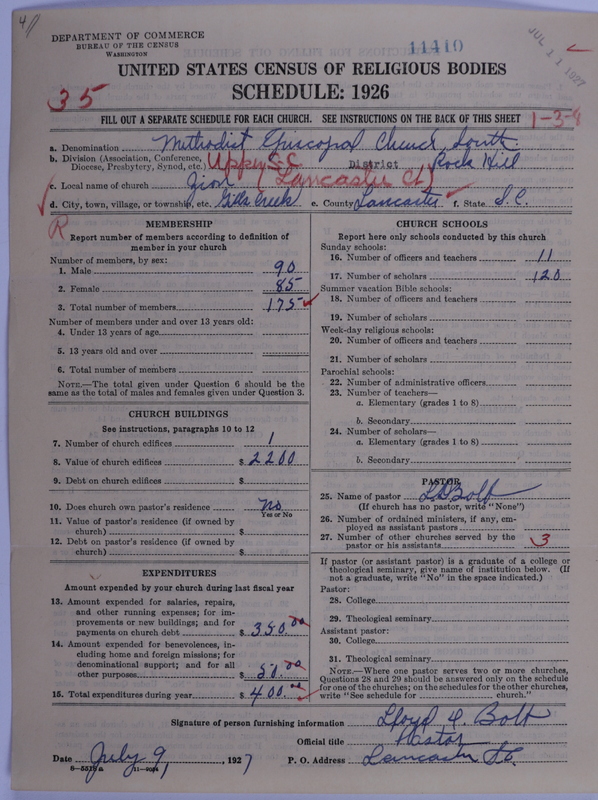 4
DEPARTMENT OF COMMERCE
BUREAU OF THE CENSUS
WASHINGTON
11410
JUL 11 1927
UNITED STATES CENSUS OF RELIGIOUS BODIES
SCHEDULE: 1926
35
FILL OUT A SEPARATE SCHEDULE FOR EACH CHURCH. SEE INSTRUCTIONS ON THE BACK OF THIS SHEET
1-3-8
a. Denomination Methodist Episcopal Church South
b. Division (Association, Conference, Diocese, Presbytery, Synod, etc.) Upper S.C. District Rock Hill
c. Local name of church Zion (Lancaster Ct)
d. City, town, village, or township, etc. Gills Creek e. County Lancaster f. State S.C.
R
MEMBERSHIP
Report number of members according to definition of
member in your church
Number of members, by sex:
1. Male 90
2. Female 85
3. Total number of members 175
Number of members under and over 13 years old:
4. Under 13 years of age
5. 13 years old and over
6. Total number of members
NOTE.—The total given under Question 6 should be the
same as the total of males and females given under Question 3.
CHURCH BUILDINGS
See instructions, paragraphs 10 to 12
7. Number of church edifices 1
8. Value of church edifices $ 2200
9. Debt on church edifices $
10. Does church own pastor's residence no
Yes or No
11. Value of pastor's residence (if owned by
church) $
12. Debt on pastor's residence (if owned by
church) $
EXPENDITURES
Amount expended by your church during last fiscal year
13. Amount expended for salaries, repairs,
and other running expenses; for im-
provements or new buildings; and for
payments on church debt $ 350.00
14. Amount expended for benevolences, in-
cluding home and foreign missions; for
denominational support; and for all
other purposes $ 50.00
15. Total expenditures during year $ 400.00
CHURCH SCHOOLS
Report here only schools conducted by this church
Sunday schools:
16. Number of officers and teachers 11
17. Number of scholars 120
Summer vacation Bible schools:
18. Number of officers and teachers
19. Number of scholars
Week-day religious schools:
20. Number of officers and teachers
21. Number of scholars
Parochial schools:
22. Number of administrative officers
23. Number of teachers—
a. Elementary (grades 1 to 8)
b. Secondary
24. Number of scholars—
a. Elementary (grades 1 to 8)
b. Secondary
PASTOR
25. Name of pastor L D Bolt
(If church has no pastor, write "None")
26. Number of ordained ministers, if any, em-
ployed as assistant pastors
27. Number of other churches served by the
pastor or his assistants 3
If pastor (or assistant pastor) is a graduate of a college or
theological seminary, give name of institution below. (If
not a graduate, write "No" in the space indicated.)
Pastor:
28. College
29. Theological seminary
Assistant pastor:
30. College
31. Theological seminary
NOTE.—Where one pastor serves two or more churches,
Questions 28 and 29 should be answered only on the schedule
for one of the churches; on the schedules for the other churches,
write "See schedule for church."
Signature of person furnishing information Lloyd D. Bolt
Official title Pastor
Date July 9, 1927 P. O. Address Lancaster S.C.